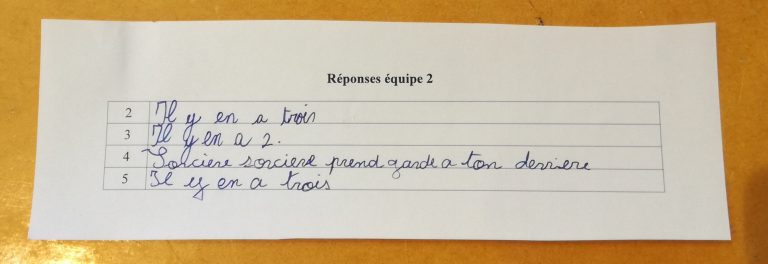 Réponses équipe 2
2 Il y en a trois
3 Il y en a 2.
4 Sorciere sorciere prend garde a ton derriere
5 Il y en a trois